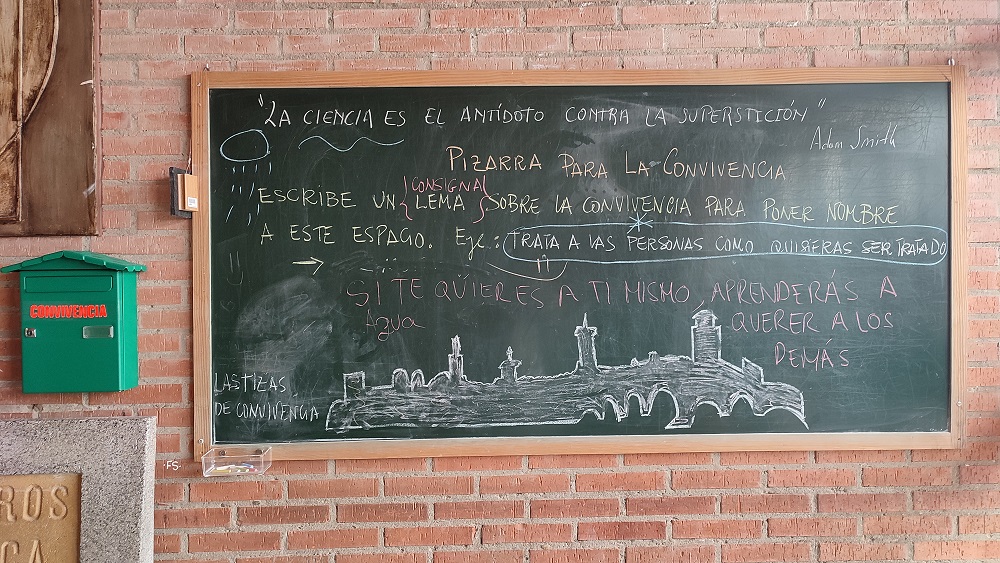 "LA CIENCIA ES EL ANTÍDOTO CONTRA LA SUPERSTICIÓN"
Adam Smith
PIZARRA PARA LA CONVIVENCIA
CONSIGNA
ESCRIBE UN LEMA SOBRE LA CONVIVENCIA PARA PONER NOMBRE
A ESTE ESPACIO. Eje.: TRATA A LAS PERSONAS COMO QUISIERAS SER TRATADO
SI TE QÜIERES A TI MISMO, APRENDERÁS A
Agua
QUERER A LOS
DEMÁS
LAS TIZAS
DE CONVIVENCIA
CONVIVENCIA
·FS·
ROS
CA